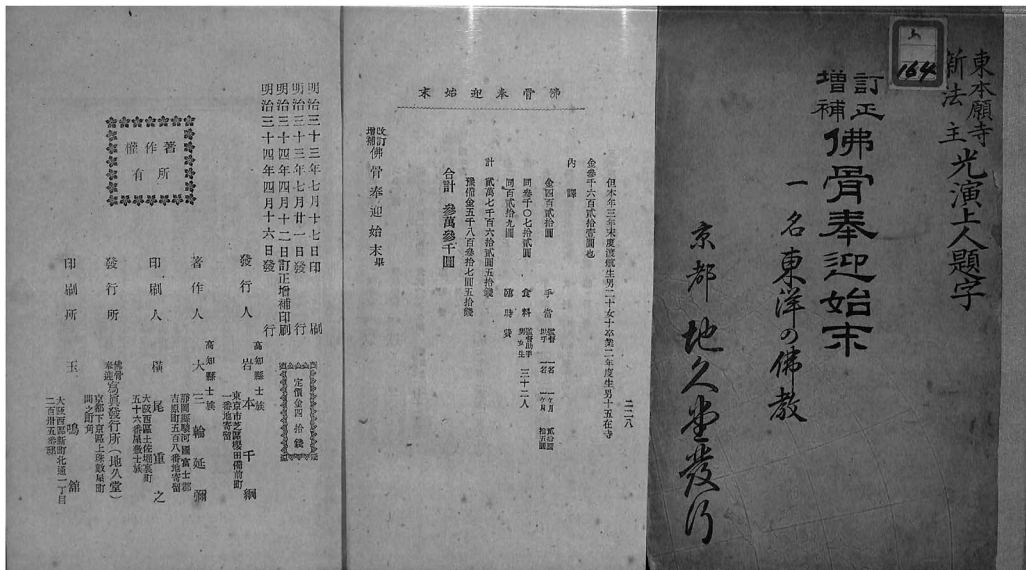 東本願寺
新法主光演上人題字
訂正
増補
佛骨奉迎始末
一名東洋の佛教
京都 地久堂發行
164
佛骨奉迎始末
二二八
但本年三年末度渡航生男二十女十卒業二年度生男十五在寺
金參千六百貳拾壹圓也
內譯
金四百貳拾圓 手當 監督 一名 一ヶ月 貳拾圓 助手 一名 一ヶ月 拾五圓
同參千〇七拾貳圓 食料 三十二人
同百貳拾九圓 臨時費
計 貳萬七千百六拾貳圓五拾錢
豫備金五千八百參拾七圓五拾錢
合計 參萬參千圓
改訂
增補
佛骨奉迎始末畢
明治三十三年七月十七日印刷
明治三十三年七月廿一日發行
明治三十四年四月十二日訂正增補印刷
明治三十四年四月十六日發行
定價金四拾錢
著作
所有
權
發行人 高知縣士族 岩本千綱
東京市芝區櫻田備前町
一番地寄留
著作人 高知縣士族 大三輪延彌
靜岡縣駿河國富士郡
吉原町五百八番地寄留
印刷人 橫尾重之
大阪西區土佐堀裏町
五十六番屋敷士族
發行所 佛骨奉迎寫眞發行所(地久堂)
京都下京區上珠數屋町
間之町角
印刷所 玉鳴舘
大阪西區新町北通一丁目
二百卅五番邸